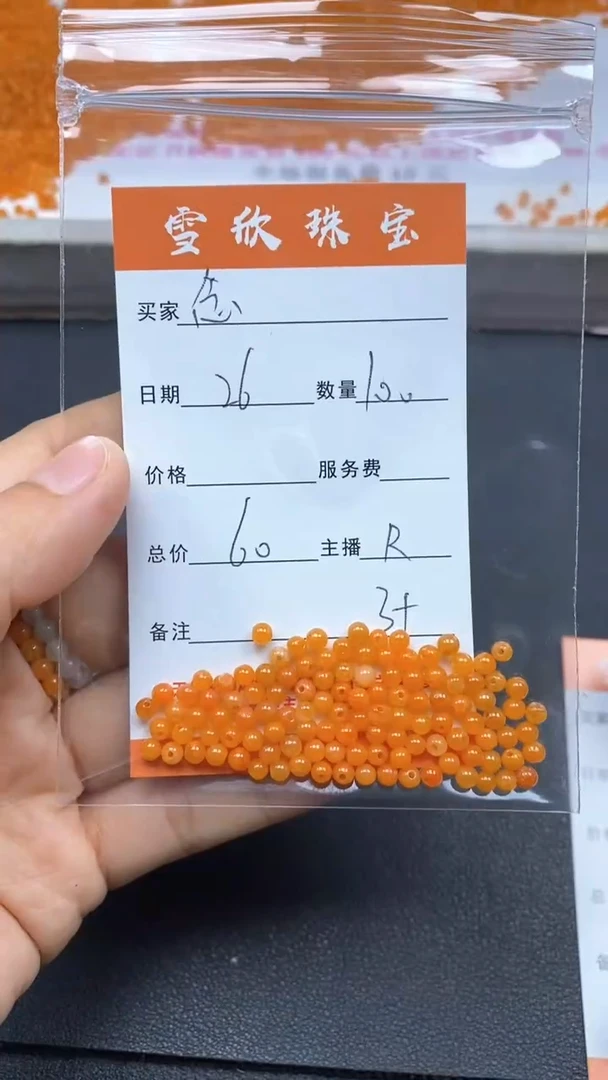 雪欣珠宝
买家 念
日期 26 数量 100
价格 服务费
总价 60 主播 R
备注 3+